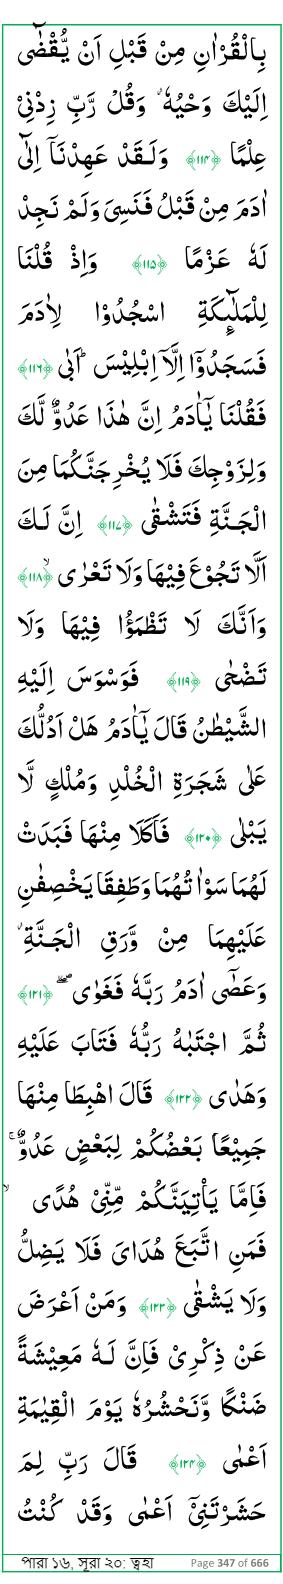 بِالْقُرْاٰنِ مِنْ قَبْلِ اَنْ يُّقْضٰٓى
اِلَيْكَ وَحْيُهٗ ۫ وَقُلْ رَّبِّ زِدْنِيْ
عِلْمًا ﴿۱۱۴﴾ وَلَقَدْ عَهِدْنَآ اِلٰٓى
اٰدَمَ مِنْ قَبْلُ فَنَسِيَ وَلَمْ نَجِدْ
لَهٗ عَزْمًا ﴿۱۱۵﴾ وَاِذْ قُلْنَا
لِلْمَلٰٓئِكَةِ اسْجُدُوْا لِاٰدَمَ
فَسَجَدُوْٓا اِلَّآ اِبْلِيْسَ ؕ اَبٰى ﴿۱۱۶﴾
فَقُلْنَا يٰٓاٰدَمُ اِنَّ هٰذَا عَدُوٌّ لَّكَ
وَلِزَوْجِكَ فَلَا يُخْرِجَنَّكُمَا مِنَ
الْجَنَّةِ فَتَشْقٰى ﴿۱۱۷﴾ اِنَّ لَكَ
اَلَّا تَجُوْعَ فِيْهَا وَلَا تَعْرٰى ۙ﴿۱۱۸﴾
وَاَنَّكَ لَا تَظْمَؤُا فِيْهَا وَلَا
تَضْحٰى ﴿۱۱۹﴾ فَوَسْوَسَ اِلَيْهِ
الشَّيْطٰنُ قَالَ يٰٓاٰدَمُ هَلْ اَدُلُّكَ
عَلٰى شَجَرَةِ الْخُلْدِ وَمُلْكٍ لَّا
يَبْلٰى ﴿۱۲۰﴾ فَاَكَلَا مِنْهَا فَبَدَتْ
لَهُمَا سَوْاٰتُهُمَا وَطَفِقَا يَخْصِفٰنِ
عَلَيْهِمَا مِنْ وَّرَقِ الْجَنَّةِ ۫
وَعَصٰٓى اٰدَمُ رَبَّهٗ فَغَوٰى ۪ۖ ﴿۱۲۱﴾
ثُمَّ اجْتَبٰهُ رَبُّهٗ فَتَابَ عَلَيْهِ
وَهَدٰى ﴿۱۲۲﴾ قَالَ اهْبِطَا مِنْهَا
جَمِيْعًۢا بَعْضُكُمْ لِبَعْضٍ عَدُوٌّ ۚ
فَاِمَّا يَاْتِيَنَّكُمْ مِّنِّيْ هُدًى ۙ
فَمَنِ اتَّبَعَ هُدَايَ فَلَا يَضِلُّ
وَلَا يَشْقٰى ﴿۱۲۳﴾ وَمَنْ اَعْرَضَ
عَنْ ذِكْرِيْ فَاِنَّ لَهٗ مَعِيْشَةً
ضَنْكًا وَّنَحْشُرُهٗ يَوْمَ الْقِيٰمَةِ
اَعْمٰى ﴿۱۲۴﴾ قَالَ رَبِّ لِمَ
حَشَرْتَنِيْٓ اَعْمٰى وَقَدْ كُنْتُ
পারা ১৬, সূরা ২০: ত্বহা Page 347 of 666